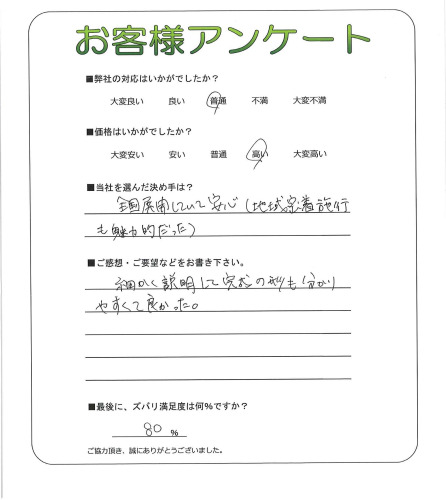 お客様アンケート
■弊社の対応はいかがでしたか？
大変良い 良い 普通 不満 大変不満
■価格はいかがでしたか？
大変安い 安い 普通 高い 大変高い
■当社を選んだ決め手は？
全国展開していて安心（地域密着施行
も魅力的だった）
■ご感想・ご要望などをお書き下さい。
細かく説明して完成の形も分かり
やすくて良かった。
■最後に、ズバリ満足度は何%ですか？
80 %
ご協力頂き、誠にありがとうございました。